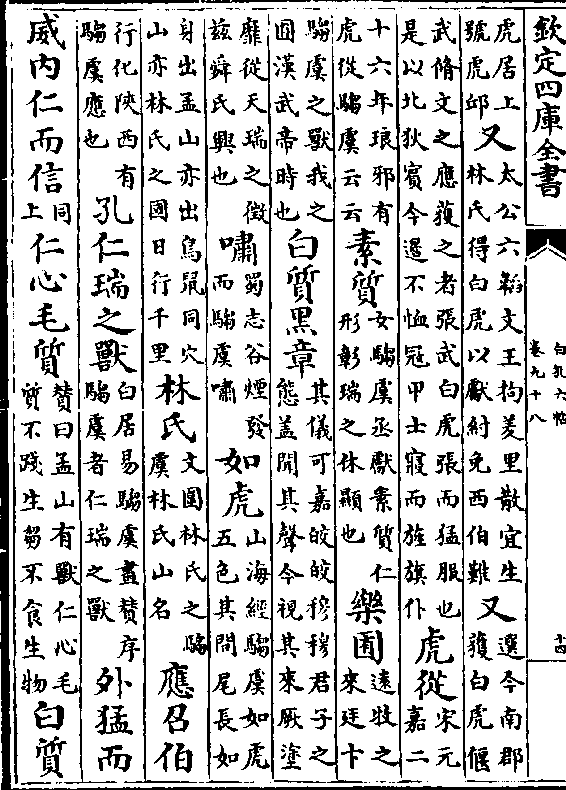 欽定四庫全書
白孔六帖
卷九十八
十四
虎居上
號虎邱
又
太公六韜文王拘羑里散宜生
林氏得白虎以獻紂免西伯難
又
選今南郡
獲白虎偃
武脩文之應獲之者張武白虎張而猛服也
是以北狄賓今遐不恤冠甲士寢而旌旗仆
虎從
宋元
嘉二
十六年琅邪有
虎從騶虞云云
素質
女騶虞丞獻素質仁
形彰瑞之休顯也
樂囿
遠牧之
來廷卞
騶虞之獸我之
囿漢武帝時也
白質黑章
其儀可嘉皎皎穆穆君子之
態蓋聞其聲今視其來厥塗
靡從天瑞之徵
茲舜氏興也
嘯
蜀志谷煙發
而騶虞嘯
如虎
山海經騶虞如虎
五色其間尾長如
身出孟山亦出鳥鼠同穴
山亦林氏之國日行千里
林氏
文囿林氏之騶
虞林氏山名
應召伯
行化陜西有
騶虞應也
孔仁瑞之獸
白居易騶虞畫贊序
騶虞者仁瑞之獸
外猛而
威内仁而信
同
上
仁心毛質
贊曰孟山有獸仁心毛
質不踐生芻不食生物
白質